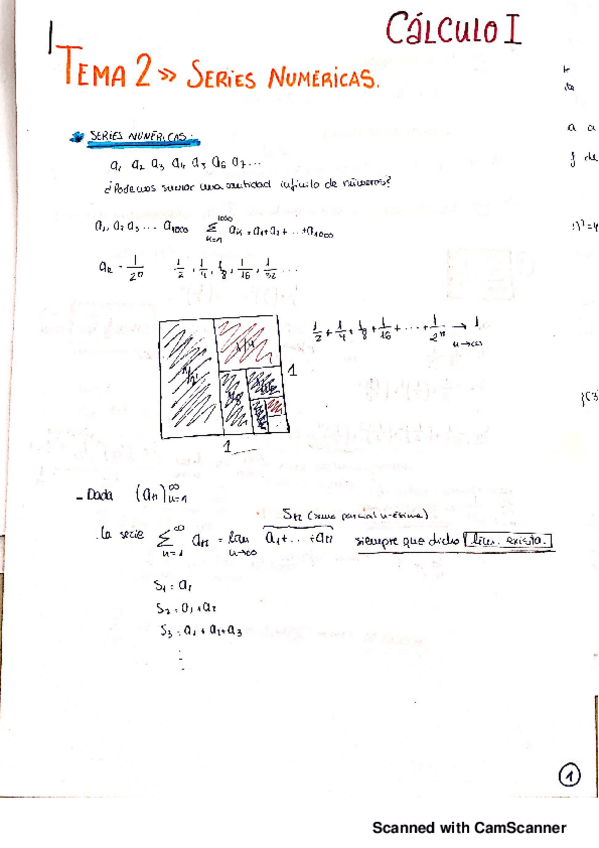 CÁLCULO I
TEMA 2 >> SERIES NUMÉRICAS.
SERIES NUMÉRICAS:
a₁ a₂ a₃ a₄ a₅ a₆ a₇ ...
¿Podemos sumar una cantidad infinita de números?
a₁, a₂ a₃ ... a₁₀₀₀ ∑ₙ₌₁¹⁰⁰⁰ aₙ = a₁+a₂+ ... +a₁₀₀₀
aₙ = 1/2ⁿ 1/2, 1/4, 1/8, 1/16, 1/32 ...
1/2 + 1/4 + 1/8 + 1/16 + ... + 1/2ⁿ → 1
n→∞
1/2 1/4 1/8 1
1
- Dada (aₙ)ₙ₌₁^∞
Sₙ (suma parcial n-ésima)
. La serie ∑ₙ₌₁^∞ aₙ = lim n→∞ a₁+...+aₙ siempre que dicho lim. exista.
S₁ = a₁
S₂ = a₁+a₂
S₃ = a₁+a₂+a₃
⋮
1
Scanned with CamScanner